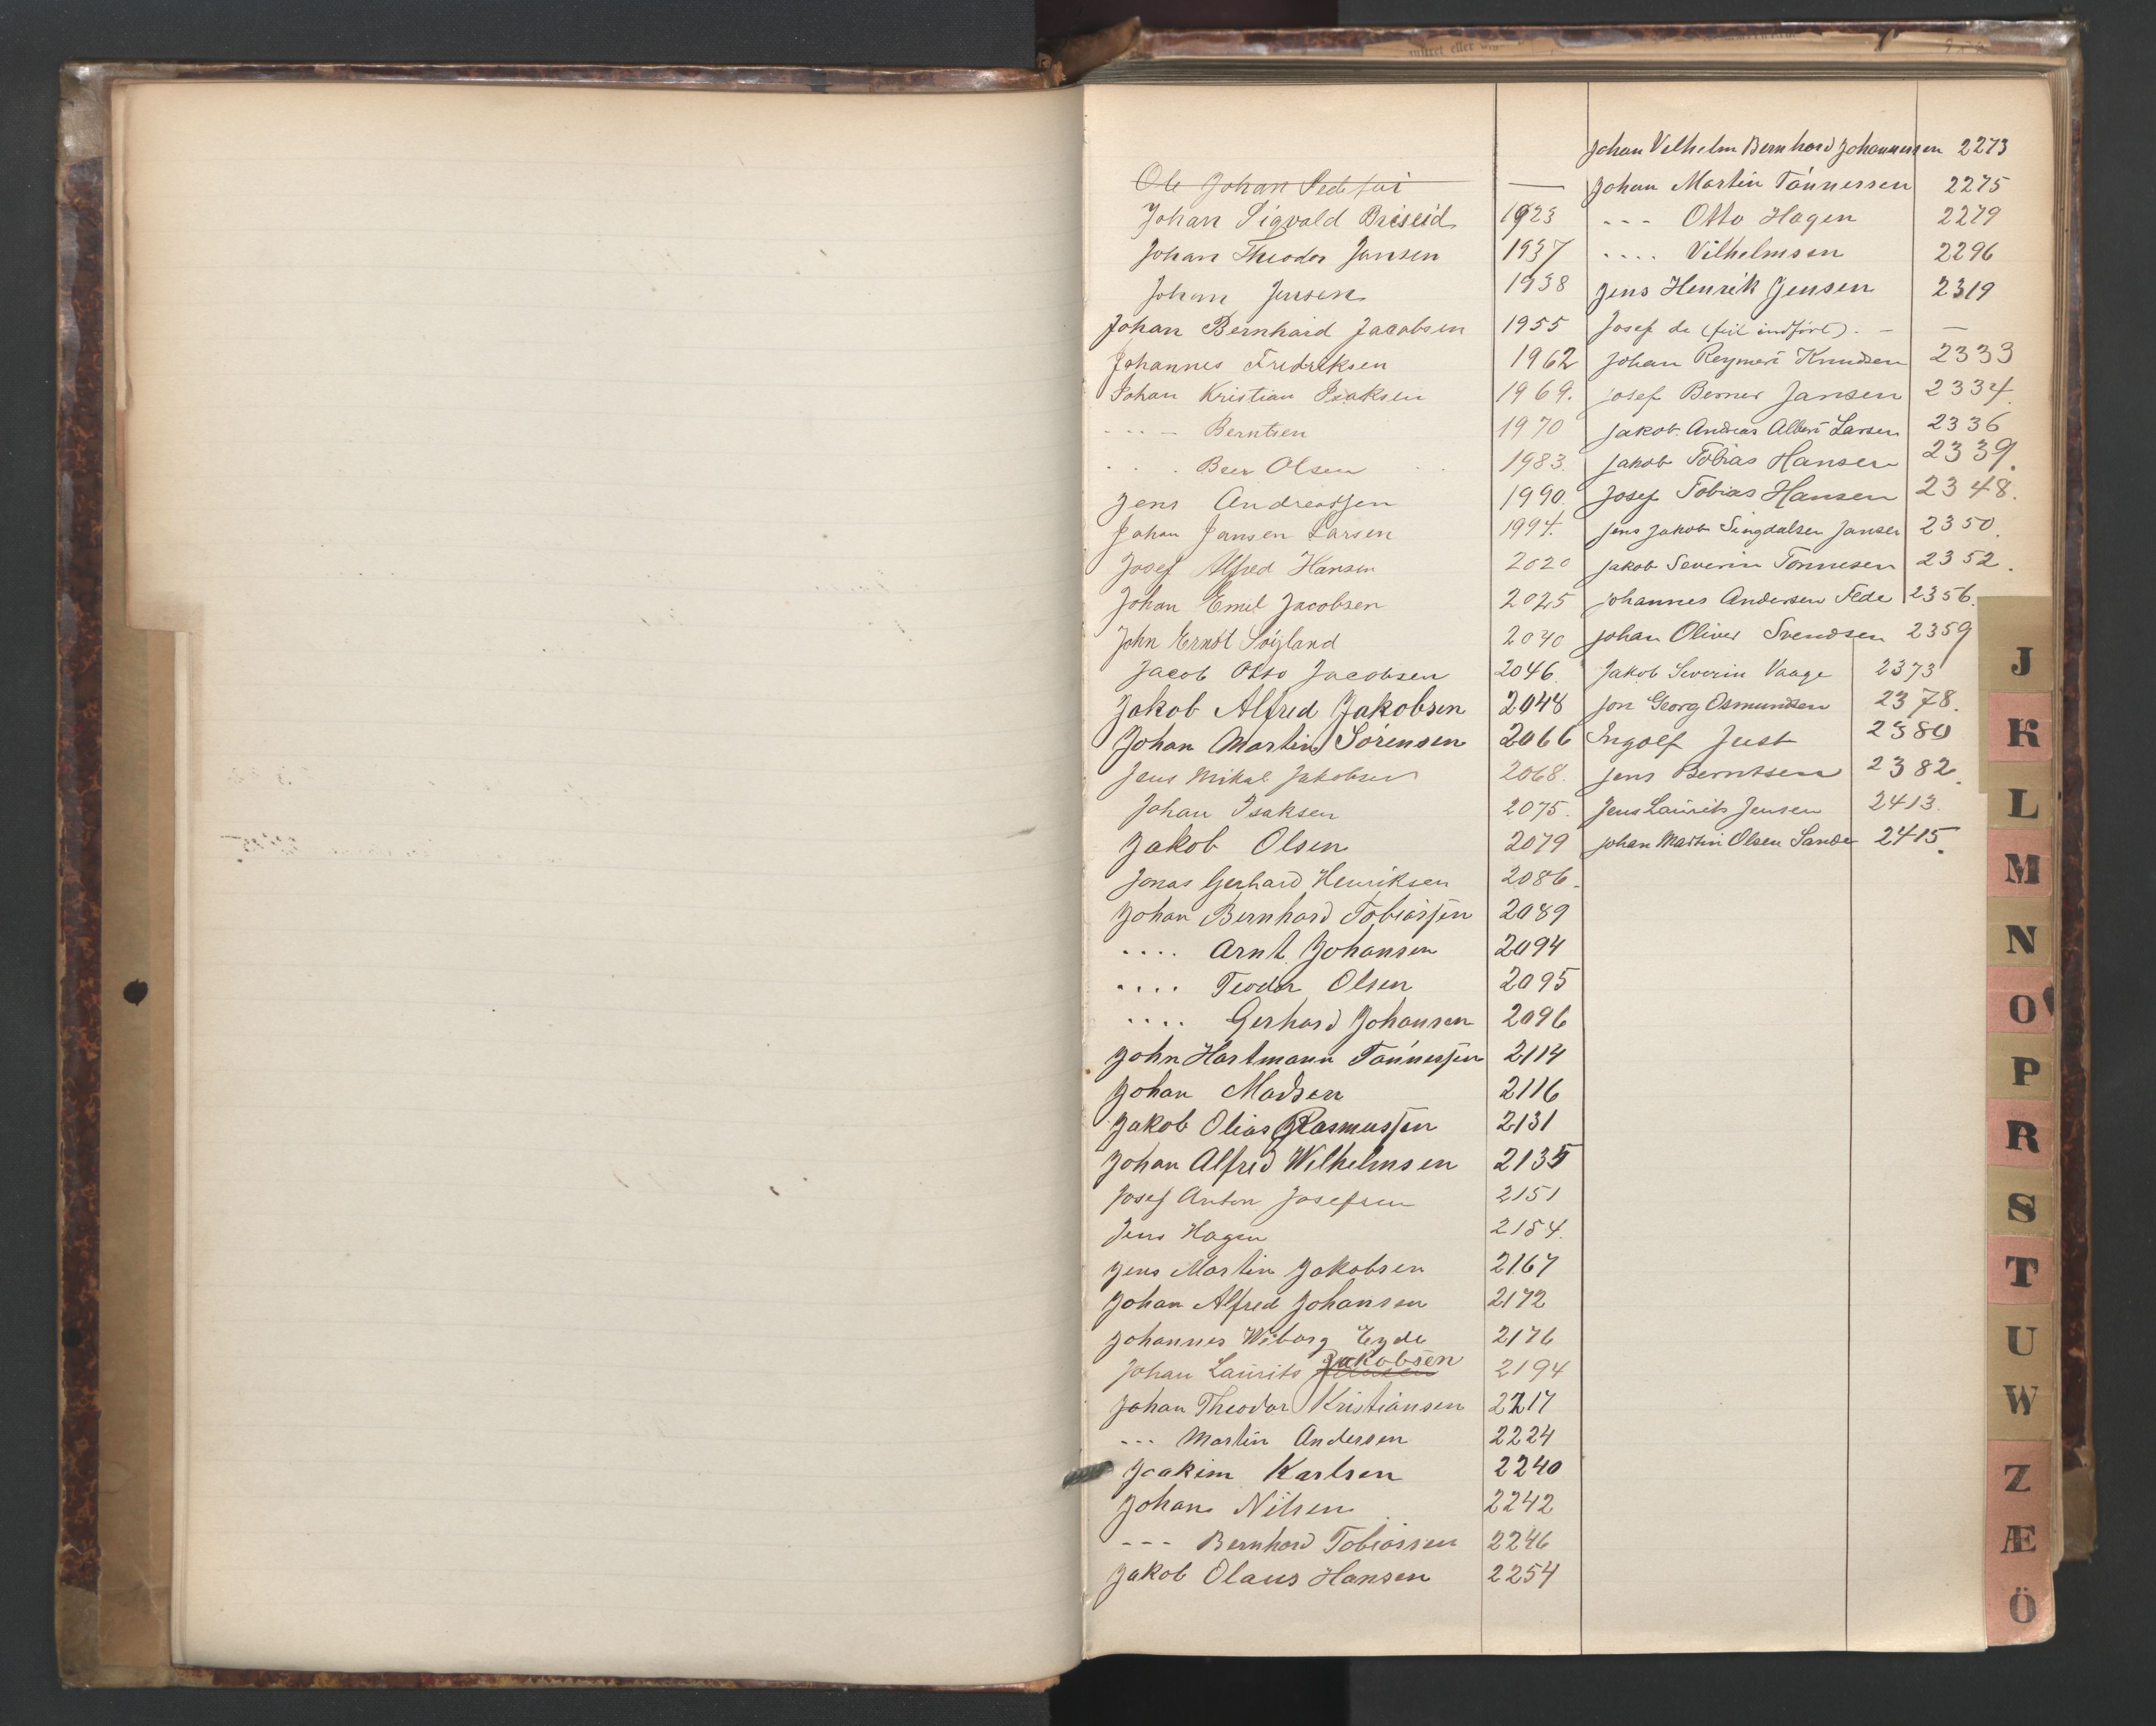 Ole Johan Pedersen —
Johan Sigvald Briseid 1923
Johan Theodor Jansen 1937
Johan Jensen 1938
Johan Bernhard Jacobsen 1955
Johannes Fredriksen 1962
Johan Kristian Isaksen 1969.
---- Berntsen 1970
. . . Beer Olsen 1983.
Jens Andreassen 1990.
Johan Jansen Larsen 1994.
Josef Alfred Hansen 2020
Johan Emil Jacobsen 2025
John Ernst Söyland 2040
Jacob Otto Jacobsen 2046.
Jakob Alfred Jakobsen 2048
Johan Martin Sörensen 2066
Jens Mikal Jakobsen 2068.
Johan Isaksen 2075.
Jakob Olsen 2079
Jonas Gerhard Henriksen 2086.
Johan Bernhard Tobiassen 2089
.... Arnt Johansen 2094
.... Teodor Olsen 2095
.... Gerhard Johansen 2096
John Hartmann Tönnessen 2114
Johan Madsen 2116
Jakob Olias Rasmussen 2131
Johan Alfred Wilhelmsen 2135
Josef Anton Josefsen 2151
Jens Hagen 2154.
Jens Martin Jakobsen 2167
Johan Alfred Johansen 2172
Johannes Wiborg Eyde 2176
Johan Laurits Jakobsen 2194
Johan Theodor Kristiansen 2217
--- Martin Andersen 2224
Joakim Karlsen 2240
Johan Nilsen 2242
--- Bernhard Tobiassen 2246
Jakob Olaus Hansen 2254
Johan Vilhelm Bernhard Johannessen 2273
Johan Martin Tönnessen 2275
--- Otto Hagen 2279
.... Vilhelmsen 2296
Jens Henrik Jensen 2319
Josef de (feil indført). — —
Johan Reymert Knudsen 2333
Josef Berner Jansen 2334.
Jakob Andreas Albert Larsen 2336
Jakob Tobias Hansen 2339.
Josef Tobias Hansen 2348.
Jens Jakob Singdalsen Jansen 2350.
Jakob Severin Tönnesen 2352.
Johannes Andersen Fede 2356.
Johan Oliver Svendsen 2359
Jakob Severin Vaage 2373
Jon Georg Osmundsen 2378.
Ingolf Just 2380
Jens Berntsen 2382.
Jens Laurits Jensen 2413.
Johan Martin Olsen Sande 2415.
J
K
L
M
N
O
P
R
S
T
U
W
Z
Æ
Ö